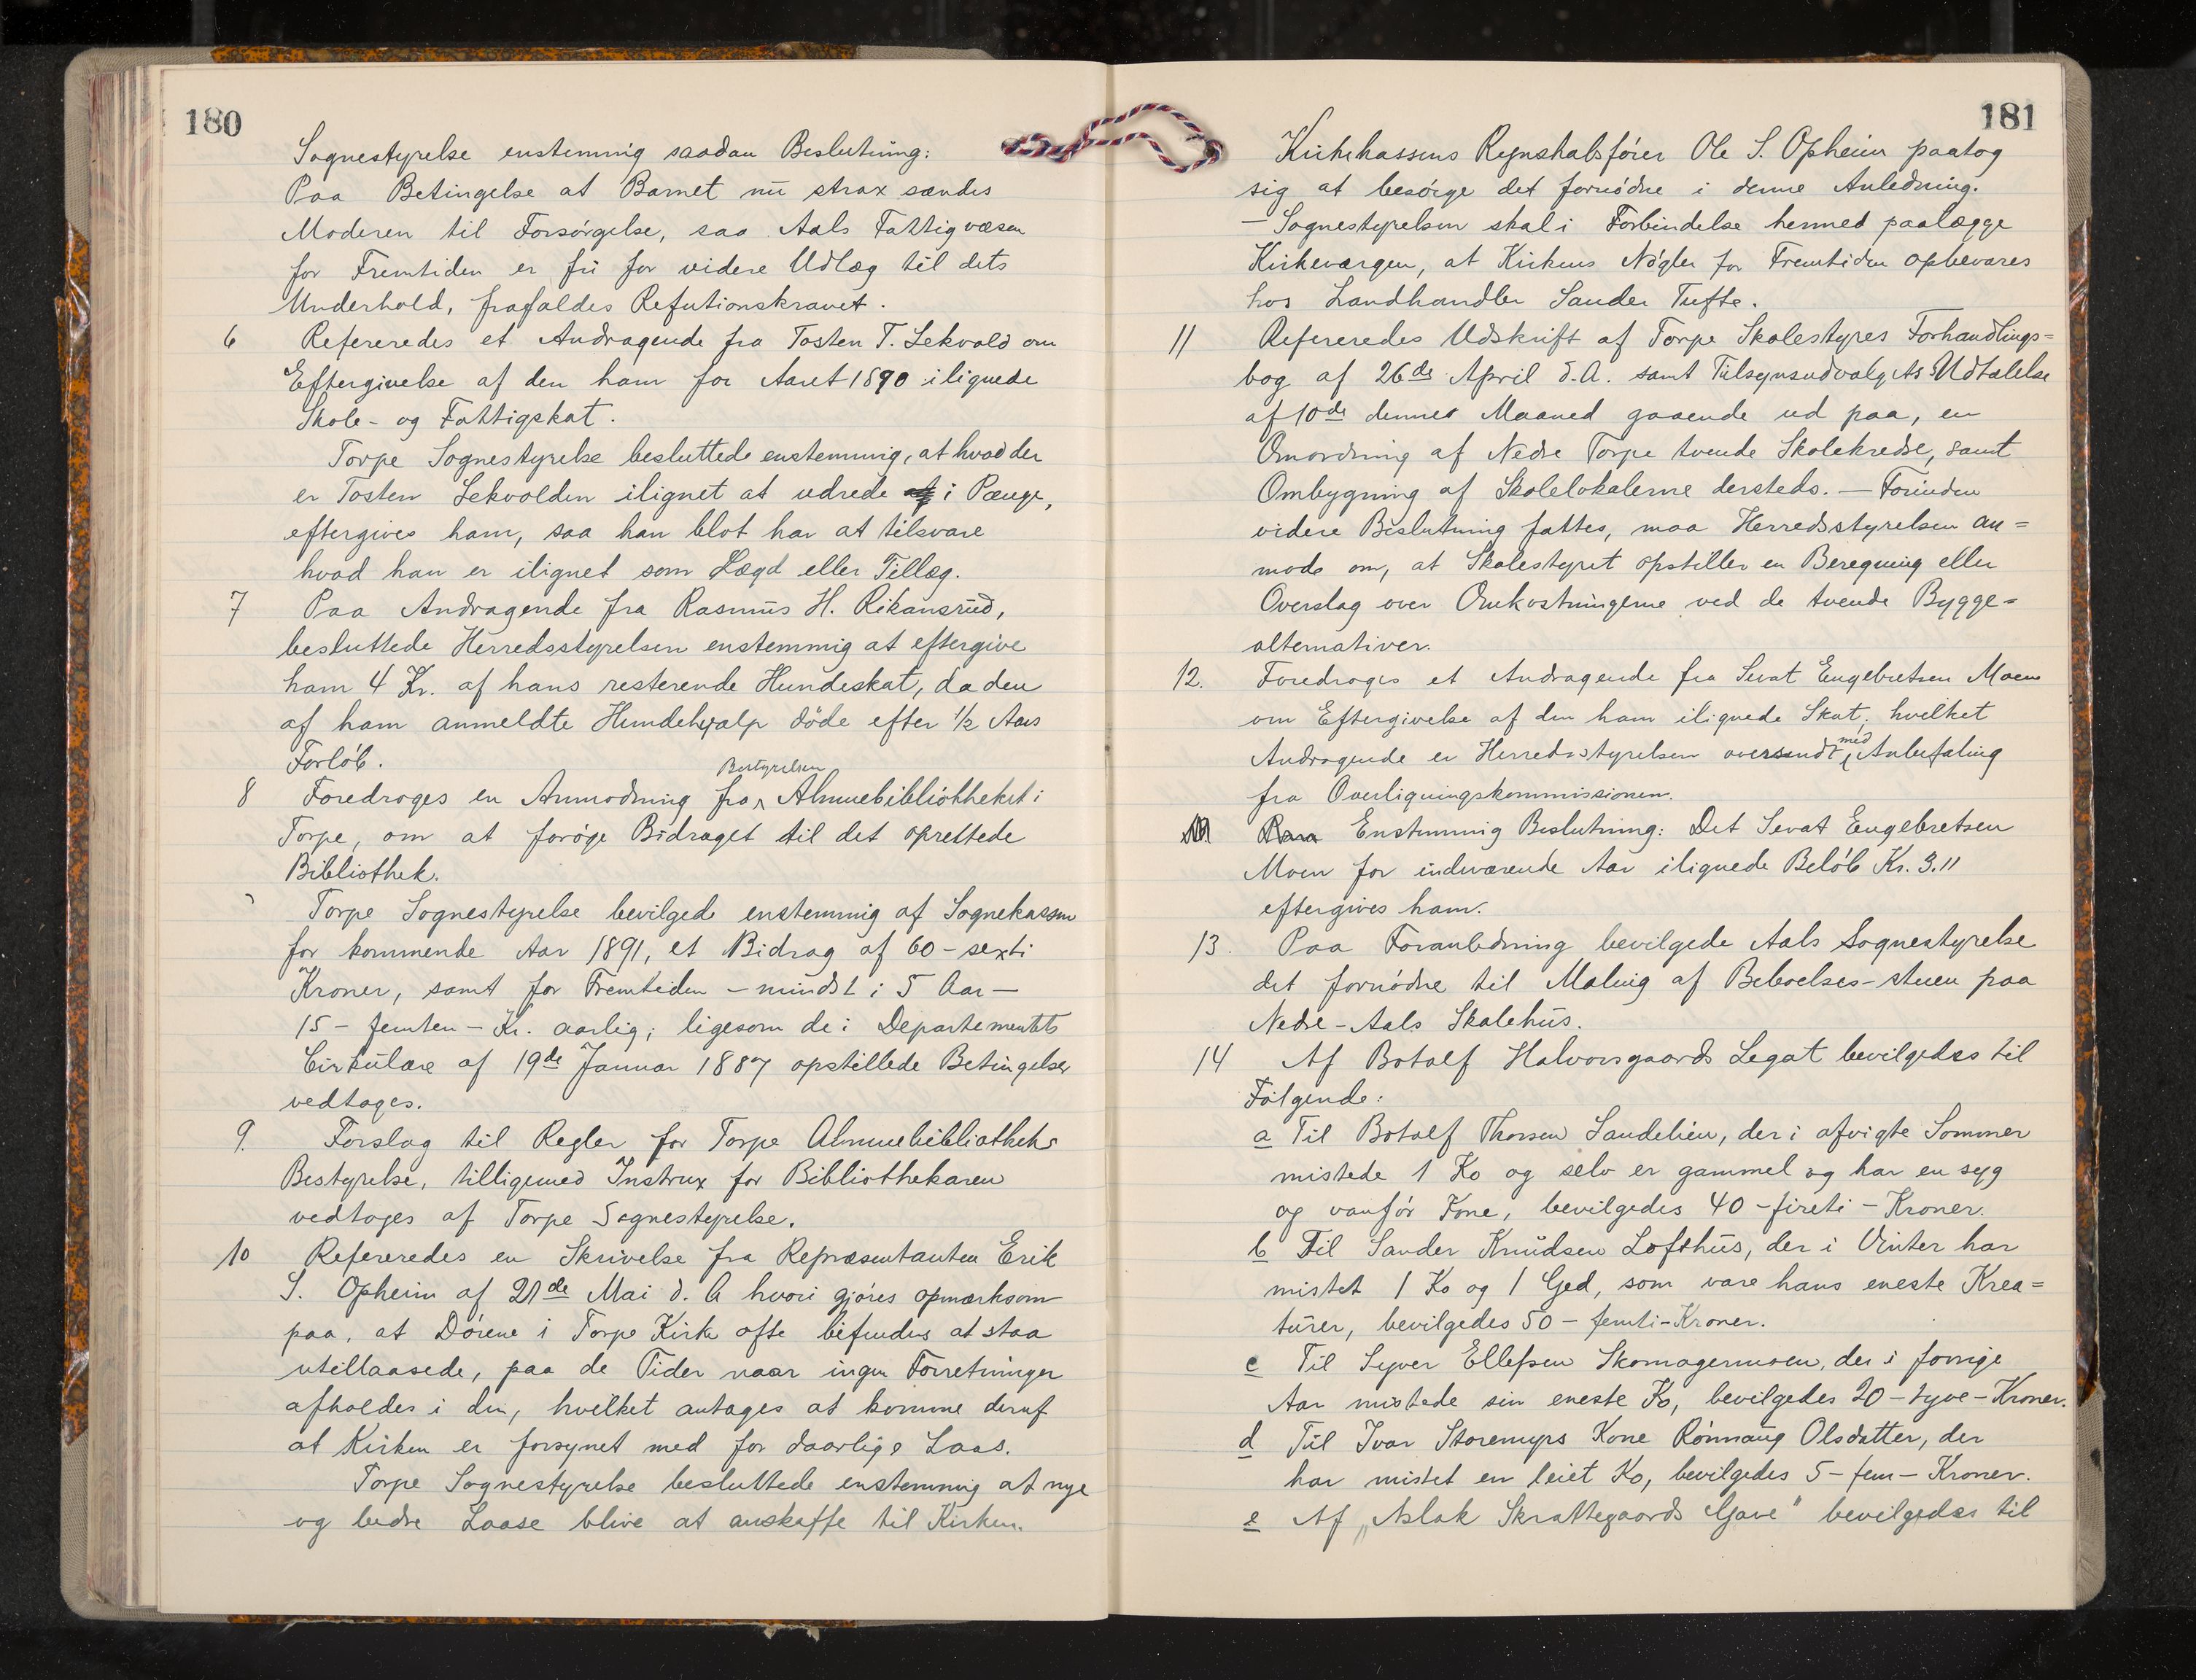 180
Sognestyrelse enstemmig saadan Beslutning:
Paa Betingelse at Barnet nu strax sændes
Moderen til Forsørgelse, saa Aals Fattigvæsen
for Fremtiden er fri for videre Udlæg til dets
Underhold, frafaldes Refutionskravet.
6 Refereredes et Andragende fra Tosten T. Lekvold om
Eftergivelse af den ham for Aaret 1890 ilignede
Skole- og Fattigskat.
Torpe Sognestyrelse besluttede enstemmig, at hvad der
er Tosten Lekvolden ilignet at udrede i Penge,
eftergives ham, saa han blot har at tilsvare
hvad han er ilignet som Lægd eller Tillæg.
7 Paa Andragende fra Rasmus H. Rikansrud,
besluttede Herredsstyrelsen enstemmig at eftergive
ham 4 Kr. af hans resterende Hundeskat, da den
af ham anmeldte Hundehvalp døde efter 1/2 Aars
Forløb.
8 Foredroges en Anmodning fra Bestyrelsen Almuebibliotheket i
Torpe, om at forøge Bidraget til det oprettede
Bibliothek.
Torpe Sognestyrelse bevilgede enstemmig af Sognekassen
for kommende Aar 1891, et Bidrag af 60 - sexti
Kroner, samt for Fremtiden - mindst i 5 Aar -
15 - femten - Kr. aarlig; ligesom de i Departementets
Cirkulære af 19de Januar 1887 opstillede Betingelser
vedtoges.
9. Forslag til Regler for Torpe Almuebibliotheks
Bestyrelse, tilligemed Instrux for Bibliothekaren
vedtoges af Torpe Sognestyrelse.
10 Refereredes en Skrivelse fra Repræsentanten Erik
S. Opheim af 21de Mai d. A hvori gjøres opmærksom
paa, at Dørene i Torpe Kirke ofte befindes at staa
utillaasede, paa de Tider naar ingen Forretninger
afholdes i den, hvilket antages at komme deraf
at Kirken er forsynet med for daarlige Laas.
Torpe Sognestyrelse besluttede enstemmig at nye
og bedre Laase blive at anskaffe til Kirken.
181
Kirkekassens Regnskabsfører Ole S. Opheim paatog
sig at besørge det fornødne i denne Anledning.
- Sognestyrelsen skal i Forbindelse hermed paalægge
Kirkeværgen, at Kirkens Nøgler for Fremtiden opbevares
hos Landhandler Sander Tufte.
11 Refereredes Udskrift af Torpe Skolestyres Forhandlings=
bog af 26de April d.A. samt Tilsynsudvalgets Udtalelse
af 10de dennes Maaned gaaende ud paa, en
Omordning af Nedre Torpe tvende Skolekredse, samt
Ombygning af Skolelokalerne dersteds. - Forinden
videre Beslutning fattes, maa Herredsstyrelsen an=
mode om, at Skolestyret opstiller en Beregning eller
Overslag over Omkostningerne ved de tvende Bygge=
alternativer.
12. Foredroges et Andragende fra Sevat Engebretsen Moen
om Eftergivelse af den ham ilignede Skat; hvilket
Andragende er Herredsstyrelsen oversendt med Anbefaling
fra Overligningskommissionen.
Enstemmig Beslutning: Det Sevat Engebretsen
Moen for indeværende Aar ilignede Beløb Kr. 3.11
eftergives ham.
13. Paa Foranledning bevilgede Aals Sognestyrelse
det fornødne til Maling af Beboelses-stuen paa
Nedre-Aals Skolehus.
14 Af Botolf Halvorsgaards Legat bevilgedes til
Følgende:
a Til Botolf Thorsen Sandelien, der i afvigte Sommer
mistede 1 Ko og selv er gammel og har en syg
og vanfør Kone, bevilgedes 40 - fireti - Kroner.
b Til Sander Knudsen Lofthus, der i Vinter har
mistet 1 Ko og 1 Ged, som vare hans eneste Krea=
turer, bevilgedes 50 - femti - Kroner.
c Til Syver Ellefsen Skomagermoen, der i forrige
Aar mistede sin eneste Ko, bevilgedes 20 - tyve - Kroner.
d Til Ivar Storemyrs Kone Rønnaug Olsdatter, der
har mistet en leiet Ko, bevilgedes 5 - fem - Kroner.
e Af „Aslak Skrattegaards Gave" bevilgedes til